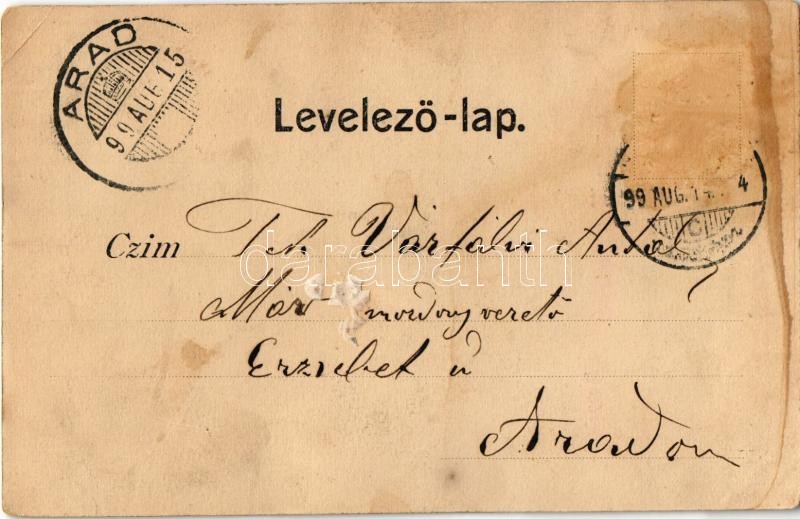 ARAD
99 AUG. 15
Levelező-lap.
99 AUG. 14. 4
C
Czim Tek Várfalvi Antal
Máv mozdonyvezető
Erzsébet u
Aradon
darabanth